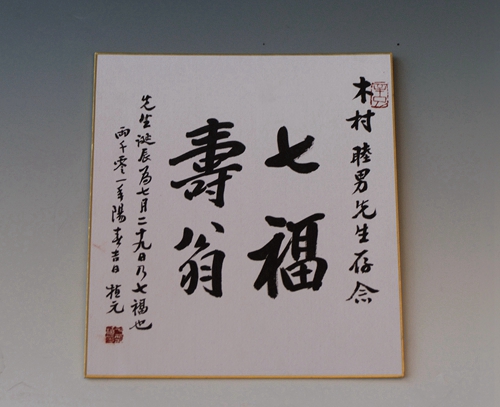 木村睦男先生存念
七福
壽翁
先生誕辰為七月二十九日乃七福也
兩千零一年陽春吉日 植元